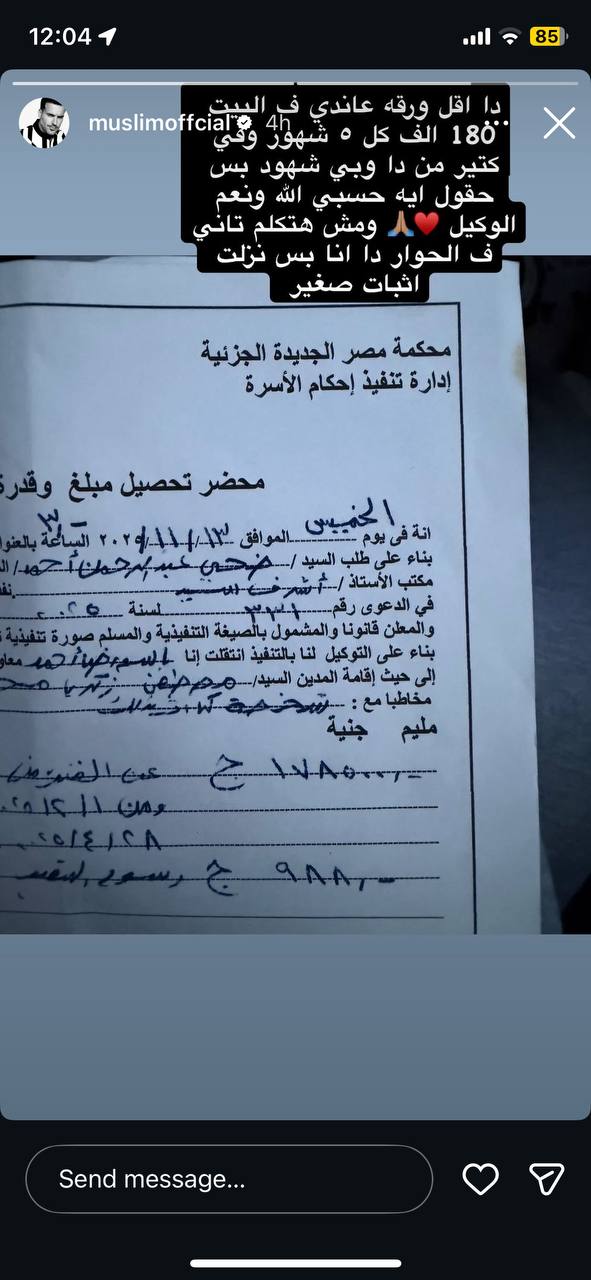 12:04
85
muslimoffcial 4h
دا اقل ورقه عاندي ف البيت
180 الف كل ٥ شهور وفي
كتير من دا وبي شهود بس
حقول ايه حسبي الله ونعم
الوكيل ♥️🙏🏽 ومش هتكلم تاني
ف الحوار دا انا بس نزلت
اثبات صغير
محكمة مصر الجديدة الجزئية
إدارة تنفيذ إحكام الأسرة
محضر تحصيل مبلغ وقدرة
انة فى يوم الخميس الموافق ١٣/١١/٢٠٢٥ الساعة بالعنوا
بناء على طلب السيد / ضحي عبد الرحمن أحمد
مكتب الأستاذ / أشرف السيد
في الدعوى رقم ٣٣١ لسنة ٢٠٢٥
والمعلن قانونا والمشمول بالصيغة التنفيذية والمسلم صورة تنفيذية
بناء على التوكيل لنا بالتنفيذ انتقلت إنا معاو
إلى حيث إقامة المدين السيد/ مصطفى زكريا
مخاطبا مع :
مليم جنية
١٧٨٥٠٠,- ج عن
ومن
٢٨/٤/٢٥
٩٨٨,- ج رسوم
Send message...